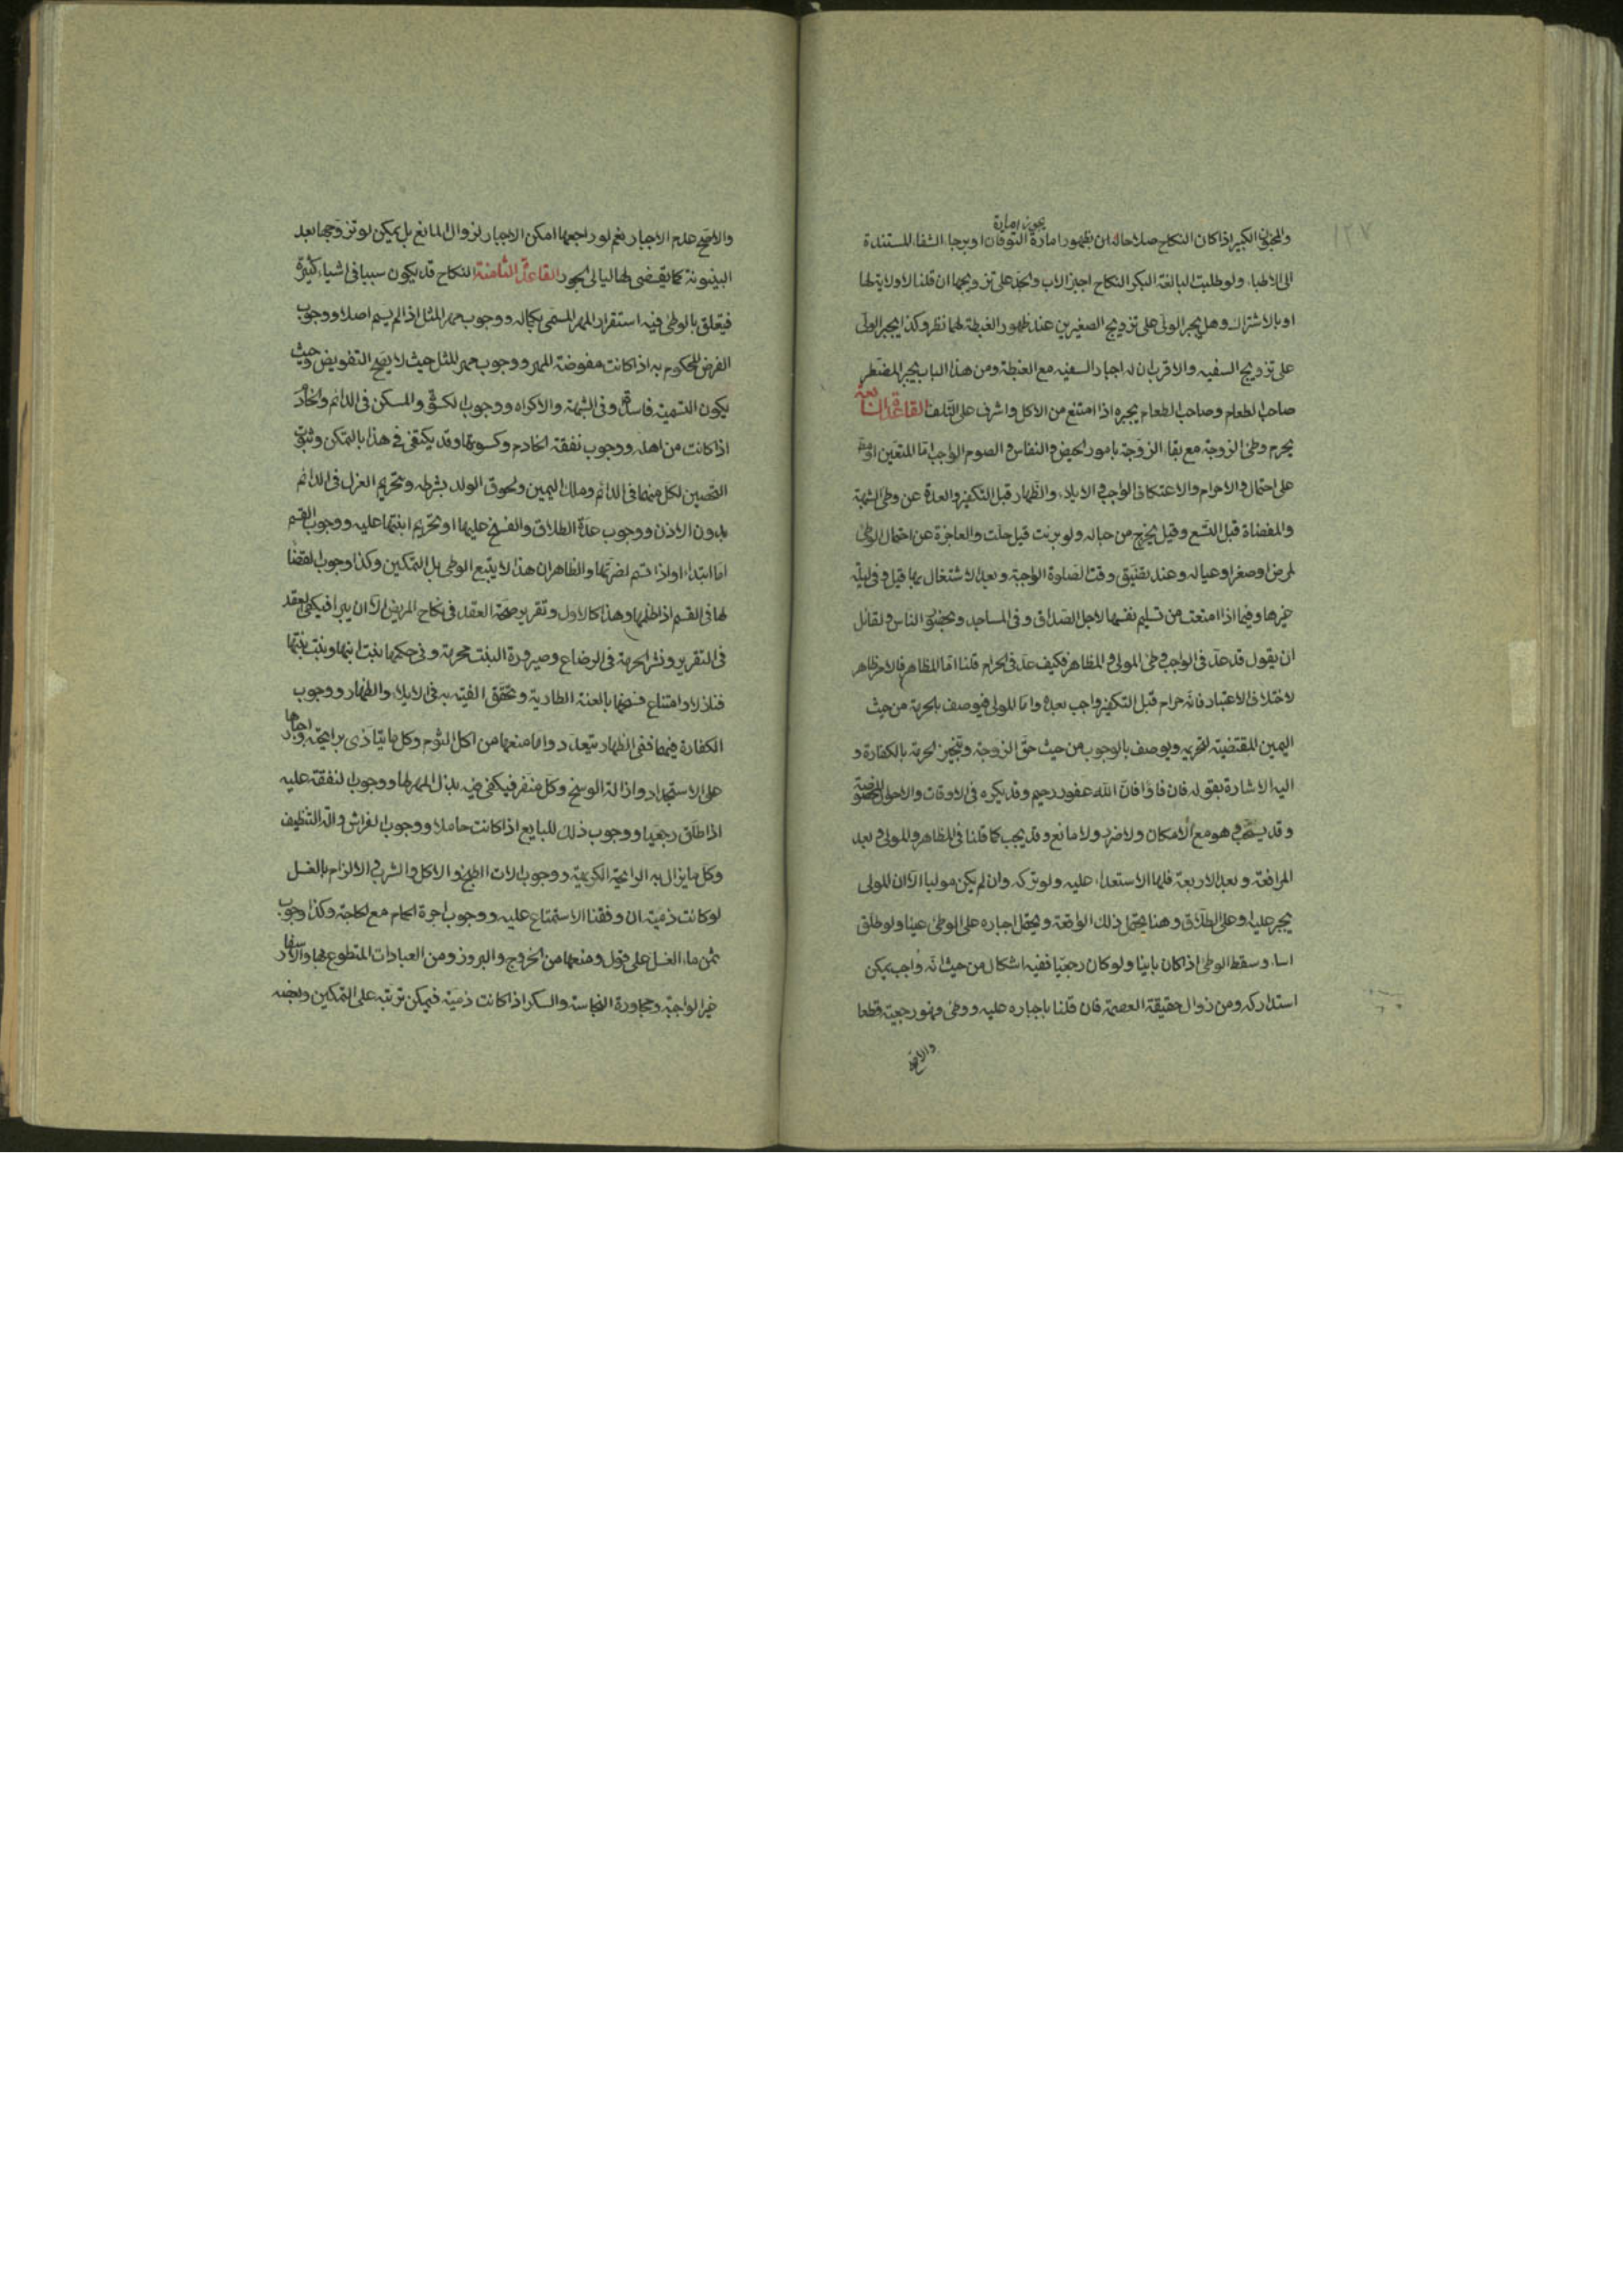 يجوز امارة
١٢٧
والمجنون الكبير اذا كان النكاح صلاحا له ان بظهور امارة التوقان او برجاء الشفاء المستندة
الى الاطباء ولو طلبت البالغة البكر النكاح اجبر الاب والجد على تزويجها ان قلنا لا ولاية لها
او بالاشتراك وهل يجبر الولى على تزويج الصغيرين عند ظهور الغبطة لهما نظر وكذا يجبر الولى
على تزويج السفيه والاقرب ان له اجبار السفيه مع الغبطة ومن هذا الباب يجبر المضطر
صاحب الطعام وصاحب الطعام يجبره اذا امتنع من الاكل واشرف على التلف القاعدة السابعة
يحرم وطئ الزوجة مع بقاء الزوجة بامور الحيض والنفاس والصوم الواجب اما المتعين او مط
على احتمال والاحرام والاعتكاف الواجب والايلاء والظهار قبل التكفير والعدة عن وطى الشبهة
والمفضاة قبل التسع وقيل يخرج من حباله ولو برئت قيل حلت والعاجزة عن احتمال الوطى
لمرض او صغر او عياله وعند تضيق وقت الصلوة الواجبة وبعد الاشتغال بها قيل وفى ليلة
غيرها وفيما اذا امتنعت من تسليم نفسها لاجل الصداق وفى المساجد وبحضرة الناس ولقائل
ان يقول قد عد فى الواجب وطئ المولى والمظاهر فكيف عد فى الحرام قلنا اما المظاهر فالامر ظاهر
لاختلاف الاعتبار فانه حرام قبل التكفير واجب بعده واما المولى فيوصف بالحرمة من حيث
اليمين المقتضية لتحريمه ويوصف بالوجوب من حيث حق الزوجة وتنجبر الحرمة بالكفارة و
اليه الاشارة بقوله فان فاؤا فان الله غفور رحيم وقد يكره فى الاوقات والاحوال المخصوصة
وقد يستحب وهو مع الامكان ولا ضرر ولا مانع وقد يجب كما قلنا فى المظاهر والمولى بعد
المرافعة وبعد الاربعة فلها الاستعداء عليه ولو تركه وان لم يكن موليا الا ان المولى
يجبر عليه وعلى الطلاق وهنا يحتمل ذلك الواقعة ويحتمل اجباره على الوطئ عينا ولو طلق
اساء وسقط الوطى اذا كان باينا ولو كان رجعيا ففيه اشكال من حيث انه واجب يمكن
استدراكه ومن زوال حقيقة العصمة فان قلنا باجباره عليه ووطئ فهو رجعية قطعا
والاصح
والاصح عدم الاجبار نعم لو راجعها امكن الاجبار لزوال المانع بل يمكن لو تزوجها بعد
البينونة كما يقضى لها ليالى الجور القاعدة الثامنة النكاح قد يكون سببا فى اشياء كثيرة
فيتعلق بالوطئ فيه استقرار المهر المسمى بكماله ووجوب مهر المثل اذا لم يسم اصلا ووجوب
الفرض المحكوم به اذا كانت مفوضة المهر ووجوب مهر المثل حيث لا يصح التفويض وحيث
يكون التسمية فاسدة وفى الشبهة والاكراه ووجوب الكسوة والمسكن فى الدائم والخادم
اذا كانت من اهله ووجوب نفقة الخادم وكسوتها وقد يكتفى فى هذا بالتمكن وثبوت
التحصين لكل منهما فى الدائم وملك اليمين ولحوق الولد بشرطه وتحريم العزل فى الدائم
بدون الاذن ووجوب عدة الطلاق والفسخ عليها او تحريم ابنتها عليه ووجوب القسم
اما ابتداء او اذا قسم لضرتها والظاهر ان هذا لا يتبع الوطى بل التمكين وكذا وجوب القضاء
لها فى القسم اذا ظلمها وهذا كالاول وتقرير صحة العقد فى نكاح المريض الا ان يبرا فيكفى العقد
فى التقرير ونشر الحرمة فى الرضاع وصيرورة البنت محرمة وفى حكمها بنت ابنها وبنت بنتها
فنازلا وامتناع فسخها بالعنة الطارية وتحقق الفئة به فى الايلاء والظهار ووجوب
الكفارة فيهما ففى الظهار يتعدد واما منعها من اكل الثوم وكل ما يتاذى برايحته واجبارها
على الاستحداد وازالة الوسخ وكل منفر فيكفى فيه بذل المهر لها ووجوب النفقة عليه
اذا طلق رجعيا ووجوب ذلك للبايع اذا كانت حاملا ووجوب الفراش والة التنظيف
وكل ما يزال به الرايحة الكريهة ووجوب الات الطبخ والاكل والشرب والالزام بالغسل
لو كانت ذمية ان وقفنا الاستمتاع عليه ووجوب اجرة الحمام مع الحاجة وكذا وجوب
ثمن ماء الغسل على قول ومنعها من الخروج والبروز ومن العبادات المتطوع بها والاسفار
غير الواجبة ومجاورة النجاسة والسكر اذا كانت ذمية فيمكن ترتبه على التمكين وبعضه